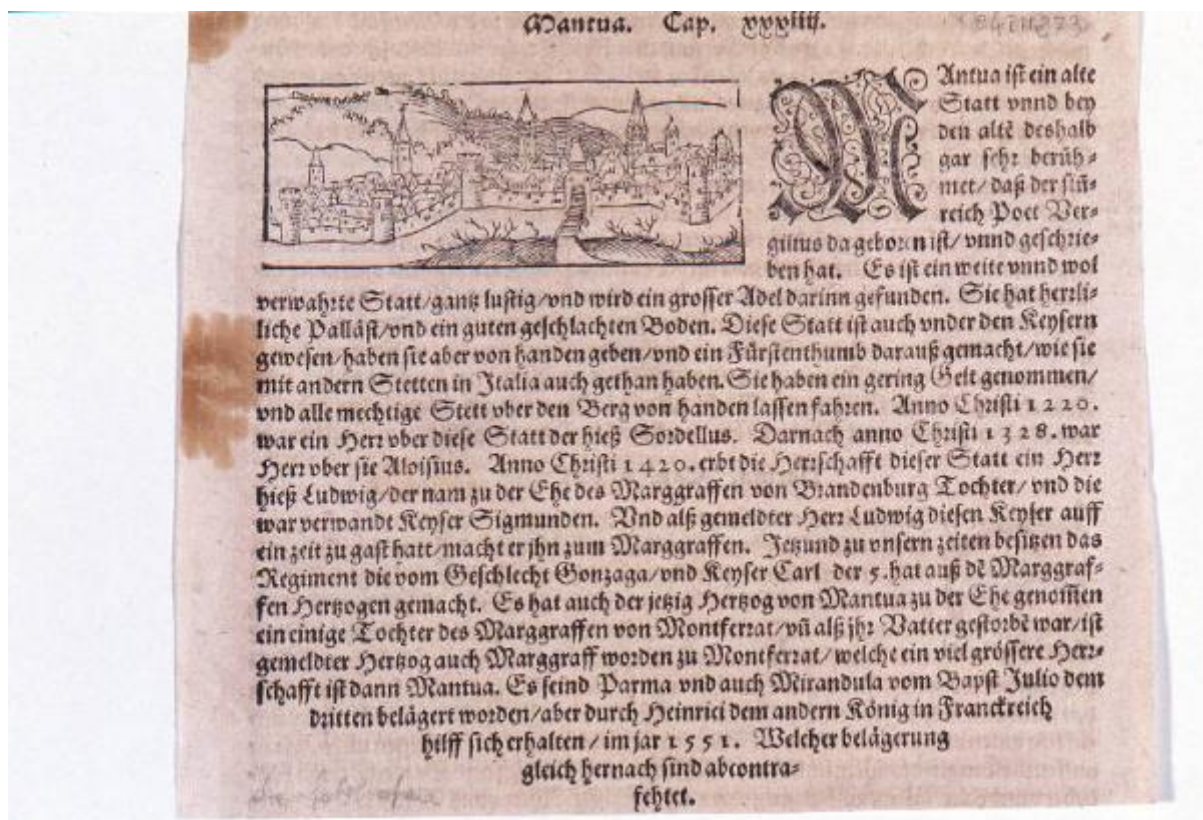 Mantua. Cap. xxxiiij.
MAntua ist ein alte
Statt vnnd bey
den altē deshalb
gar sehr berüh-
met/ daß der siñ-
reich Poet Ver-
gilius da geboren ist/ vnnd geschrie-
ben hat. Es ist ein weite vnnd wol
verwahrte Statt/ gantz lustig/ vnd wird ein grosser Adel darinn gefunden. Sie hat herrli-
liche Palläst/ vnd ein guten geschlachten Boden. Diese Statt ist auch vnder den Keysern
gewesen/ haben sie aber von handen geben/ vnd ein Fürstenthumb darauß gemacht/ wie sie
mit andern Stetten in Italia auch gethan haben. Sie haben ein gering Gelt genommen/
vnd alle mechtige Stett vber den Berg von handen lassen fahren. Anno Christi 1220.
war ein Herr vber diese Statt der hieß Sordellus. Darnach anno Christi 1328. war
Herr vber sie Aloisius. Anno Christi 1420. erbt die Herrschafft dieser Statt ein Herr
hieß Ludwig/ der nam zu der Ehe des Marggraffen von Brandenburg Tochter/ vnd die
war verwandt Keyser Sigmunden. Vnd alß gemeldter Herr Ludwig diesen Keyser auff
ein zeit zu gast hatt/ macht er jhn zum Marggraffen. Jetzund zu vnsern zeiten besitzen das
Regiment die vom Geschlecht Gonzaga/ vnd Keyser Carl der 5. hat auß dē Marggraf-
fen Hertzogen gemacht. Es hat auch der jetzig Hertzog von Mantua zu der Ehe genom̄en
ein einige Tochter des Marggraffen von Montferrat/ vñ alß jhr Vatter gestorbē war/ ist
gemeldter Hertzog auch Marggraff worden zu Montferrat/ welche ein viel grössere Herr-
schafft ist dann Mantua. Es seind Parma vnd auch Mirandula vom Bapst Julio dem
dritten belägert worden/ aber durch Heinrici dem andern König in Franckreich
hilff sich erhalten/ im jar 1551. Welcher belägerung
gleich hernach sind abcontra-
fehtet.